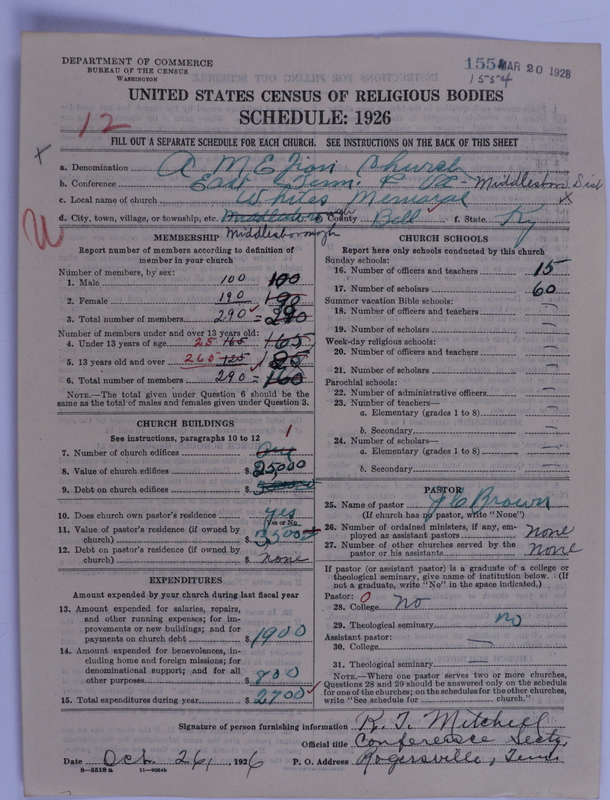 DEPARTMENT OF COMMERCE
BUREAU OF THE CENSUS
WASHINGTON
1554 MAR 20 1928
1554
UNITED STATES CENSUS OF RELIGIOUS BODIES
SCHEDULE: 1926
12
FILL OUT A SEPARATE SCHEDULE FOR EACH CHURCH. SEE INSTRUCTIONS ON THE BACK OF THIS SHEET
x
a. Denomination A M E Zion Church
b. Conference East Tenn. & Va - Middlesboro Dist
c. Local name of church Whites Memorial x
d. City, town, village, or township, etc. Middlesborough County Bell f. State Ky
Middlesborough
MEMBERSHIP
Report number of members according to definition of member in your church
Number of members, by sex:
1. Male 100 100
2. Female 190 190
3. Total number of members 290 = 290
Number of members under and over 13 years old:
4. Under 13 years of age 25 165 165
5. 13 years old and over 265 125 125
6. Total number of members 290 = 160
NOTE.—The total given under Question 6 should be the same as the total of males and females given under Question 3.
CHURCH BUILDINGS
See instructions, paragraphs 10 to 12
1
7. Number of church edifices One
8. Value of church edifices $ 25,000
9. Debt on church edifices $
10. Does church own pastor's residence yes
Yes or No
11. Value of pastor's residence (if owned by church) $ 3,500
12. Debt on pastor's residence (if owned by church) $ none
EXPENDITURES
Amount expended by your church during last fiscal year
13. Amount expended for salaries, repairs, and other running expenses; for improvements or new buildings; and for payments on church debt $ 1900
14. Amount expended for benevolences, including home and foreign missions; for denominational support; and for all other purposes $ 800
15. Total expenditures during year $ 2700
CHURCH SCHOOLS
Report here only schools conducted by this church
Sunday schools:
16. Number of officers and teachers 15
17. Number of scholars 60
Summer vacation Bible schools:
18. Number of officers and teachers —
19. Number of scholars —
Week-day religious schools:
20. Number of officers and teachers —
21. Number of scholars —
Parochial schools:
22. Number of administrative officers —
23. Number of teachers—
a. Elementary (grades 1 to 8) —
b. Secondary —
24. Number of scholars—
a. Elementary (grades 1 to 8) —
b. Secondary —
PASTOR
25. Name of pastor J C Brown
(If church has no pastor, write "None")
26. Number of ordained ministers, if any, employed as assistant pastors none
27. Number of other churches served by the pastor or his assistants none
If pastor (or assistant pastor) is a graduate of a college or theological seminary, give name of institution below. (If not a graduate, write "No" in the space indicated.)
Pastor: 0
28. College no
29. Theological seminary no
Assistant pastor:
30. College —
31. Theological seminary
NOTE.—Where one pastor serves two or more churches, Questions 28 and 29 should be answered only on the schedule for one of the churches; on the schedules for the other churches, write "See schedule for ........ church."
Signature of person furnishing information R. T. Mitchell
Official title Conference Secty.
Date Oct. 26, 1926 P. O. Address Rogersville, Tenn.
8—5518a 11—9064b